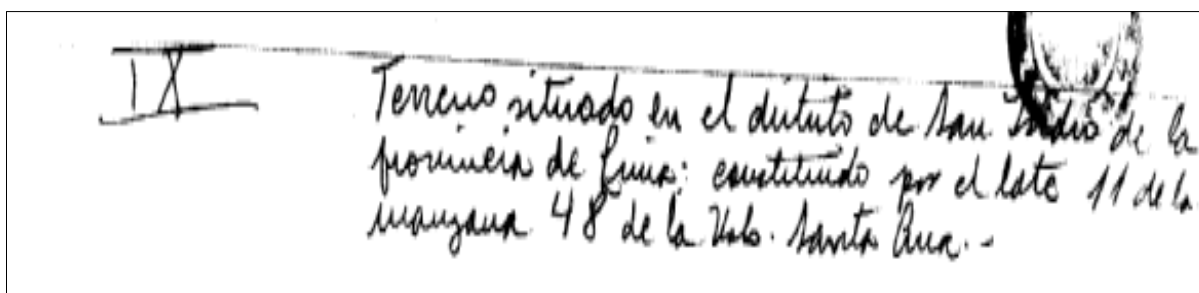 IX
Terreno situado en el distrito de San Isidro de la
provincia de Lima: constituido por el lote 11 de la
manzana 48 de la Urb. Santa Ana.-